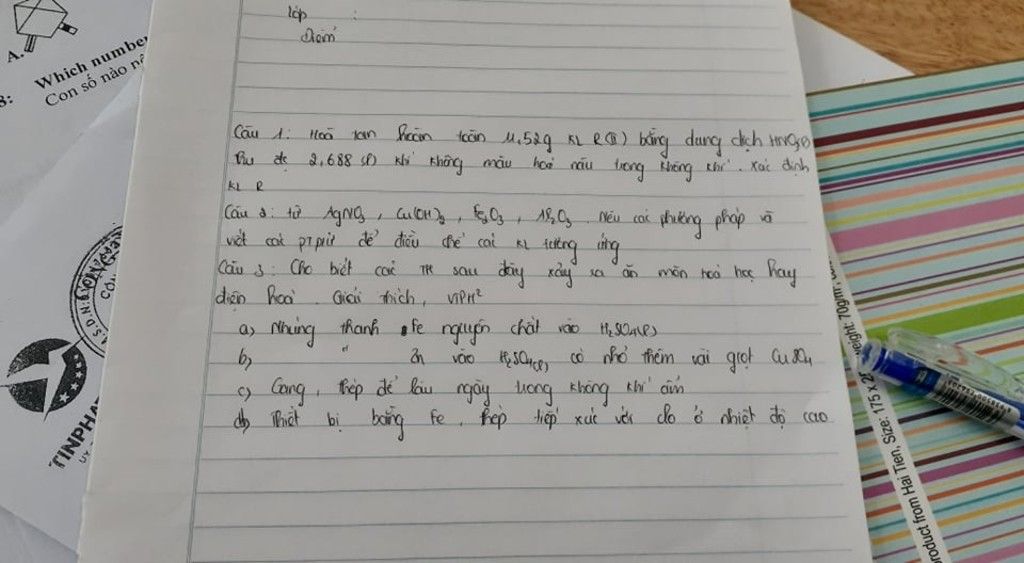 A.
8: Which number
Con số nào nê
lớp :
Điểm
Câu 1: Hoà tan hoàn toàn 11,52g KL R(II) bằng dung dịch HNO3
thu đc 2,688 (l) khí không màu hoá nâu trong không khí. Xác định
KL R
Câu 2: từ AgNO3, Cu(OH)2, Fe2O3, Al2O3. Nêu các phương pháp và
viết các ptpứ để điều chế các KL tương ứng
Câu 3: Cho biết các TH sau đây xảy ra ăn mòn hoá học hay
điện hoá. Giải thích, VIPH2
a) Nhúng thanh Fe nguyên chất vào H2SO4(l)
b) " vào H2SO4(l) có nhỏ thêm vài giọt CuSO4
c) Gang, thép để lâu ngày trong không khí ẩm
d) Thiết bị bằng Fe, thép tiếp xúc với clo ở nhiệt độ cao
S.D.N:
TINPHA
eight: 70g/m², Size: 175 x 2
product from Hai Tien,